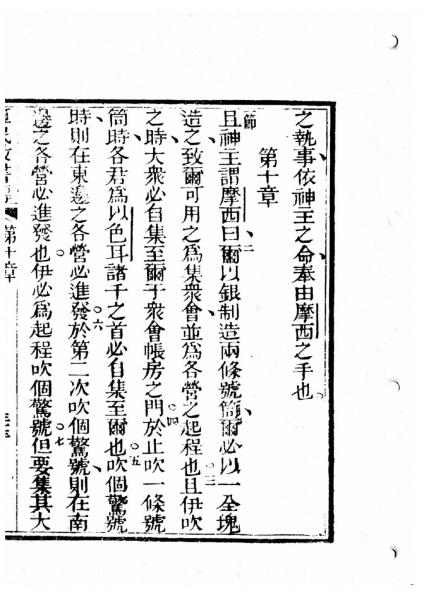 之執事依神主之命奉由摩西之手也
第十章
節
且神主謂摩西曰爾以銀制造兩條號筒爾必以一全塊
造之致爾可用之為集眾會並為各營之起程也且伊吹
之時大眾必自集至爾于眾會帳房之門於止吹一條號
筒時各君為以色耳諸千之首必自集至爾也吹個驚號
時則在東邊之各營必進發於第二次吹個驚號則在南
邊之各營必進發也伊必為起程吹個驚號但要集其大
第十章